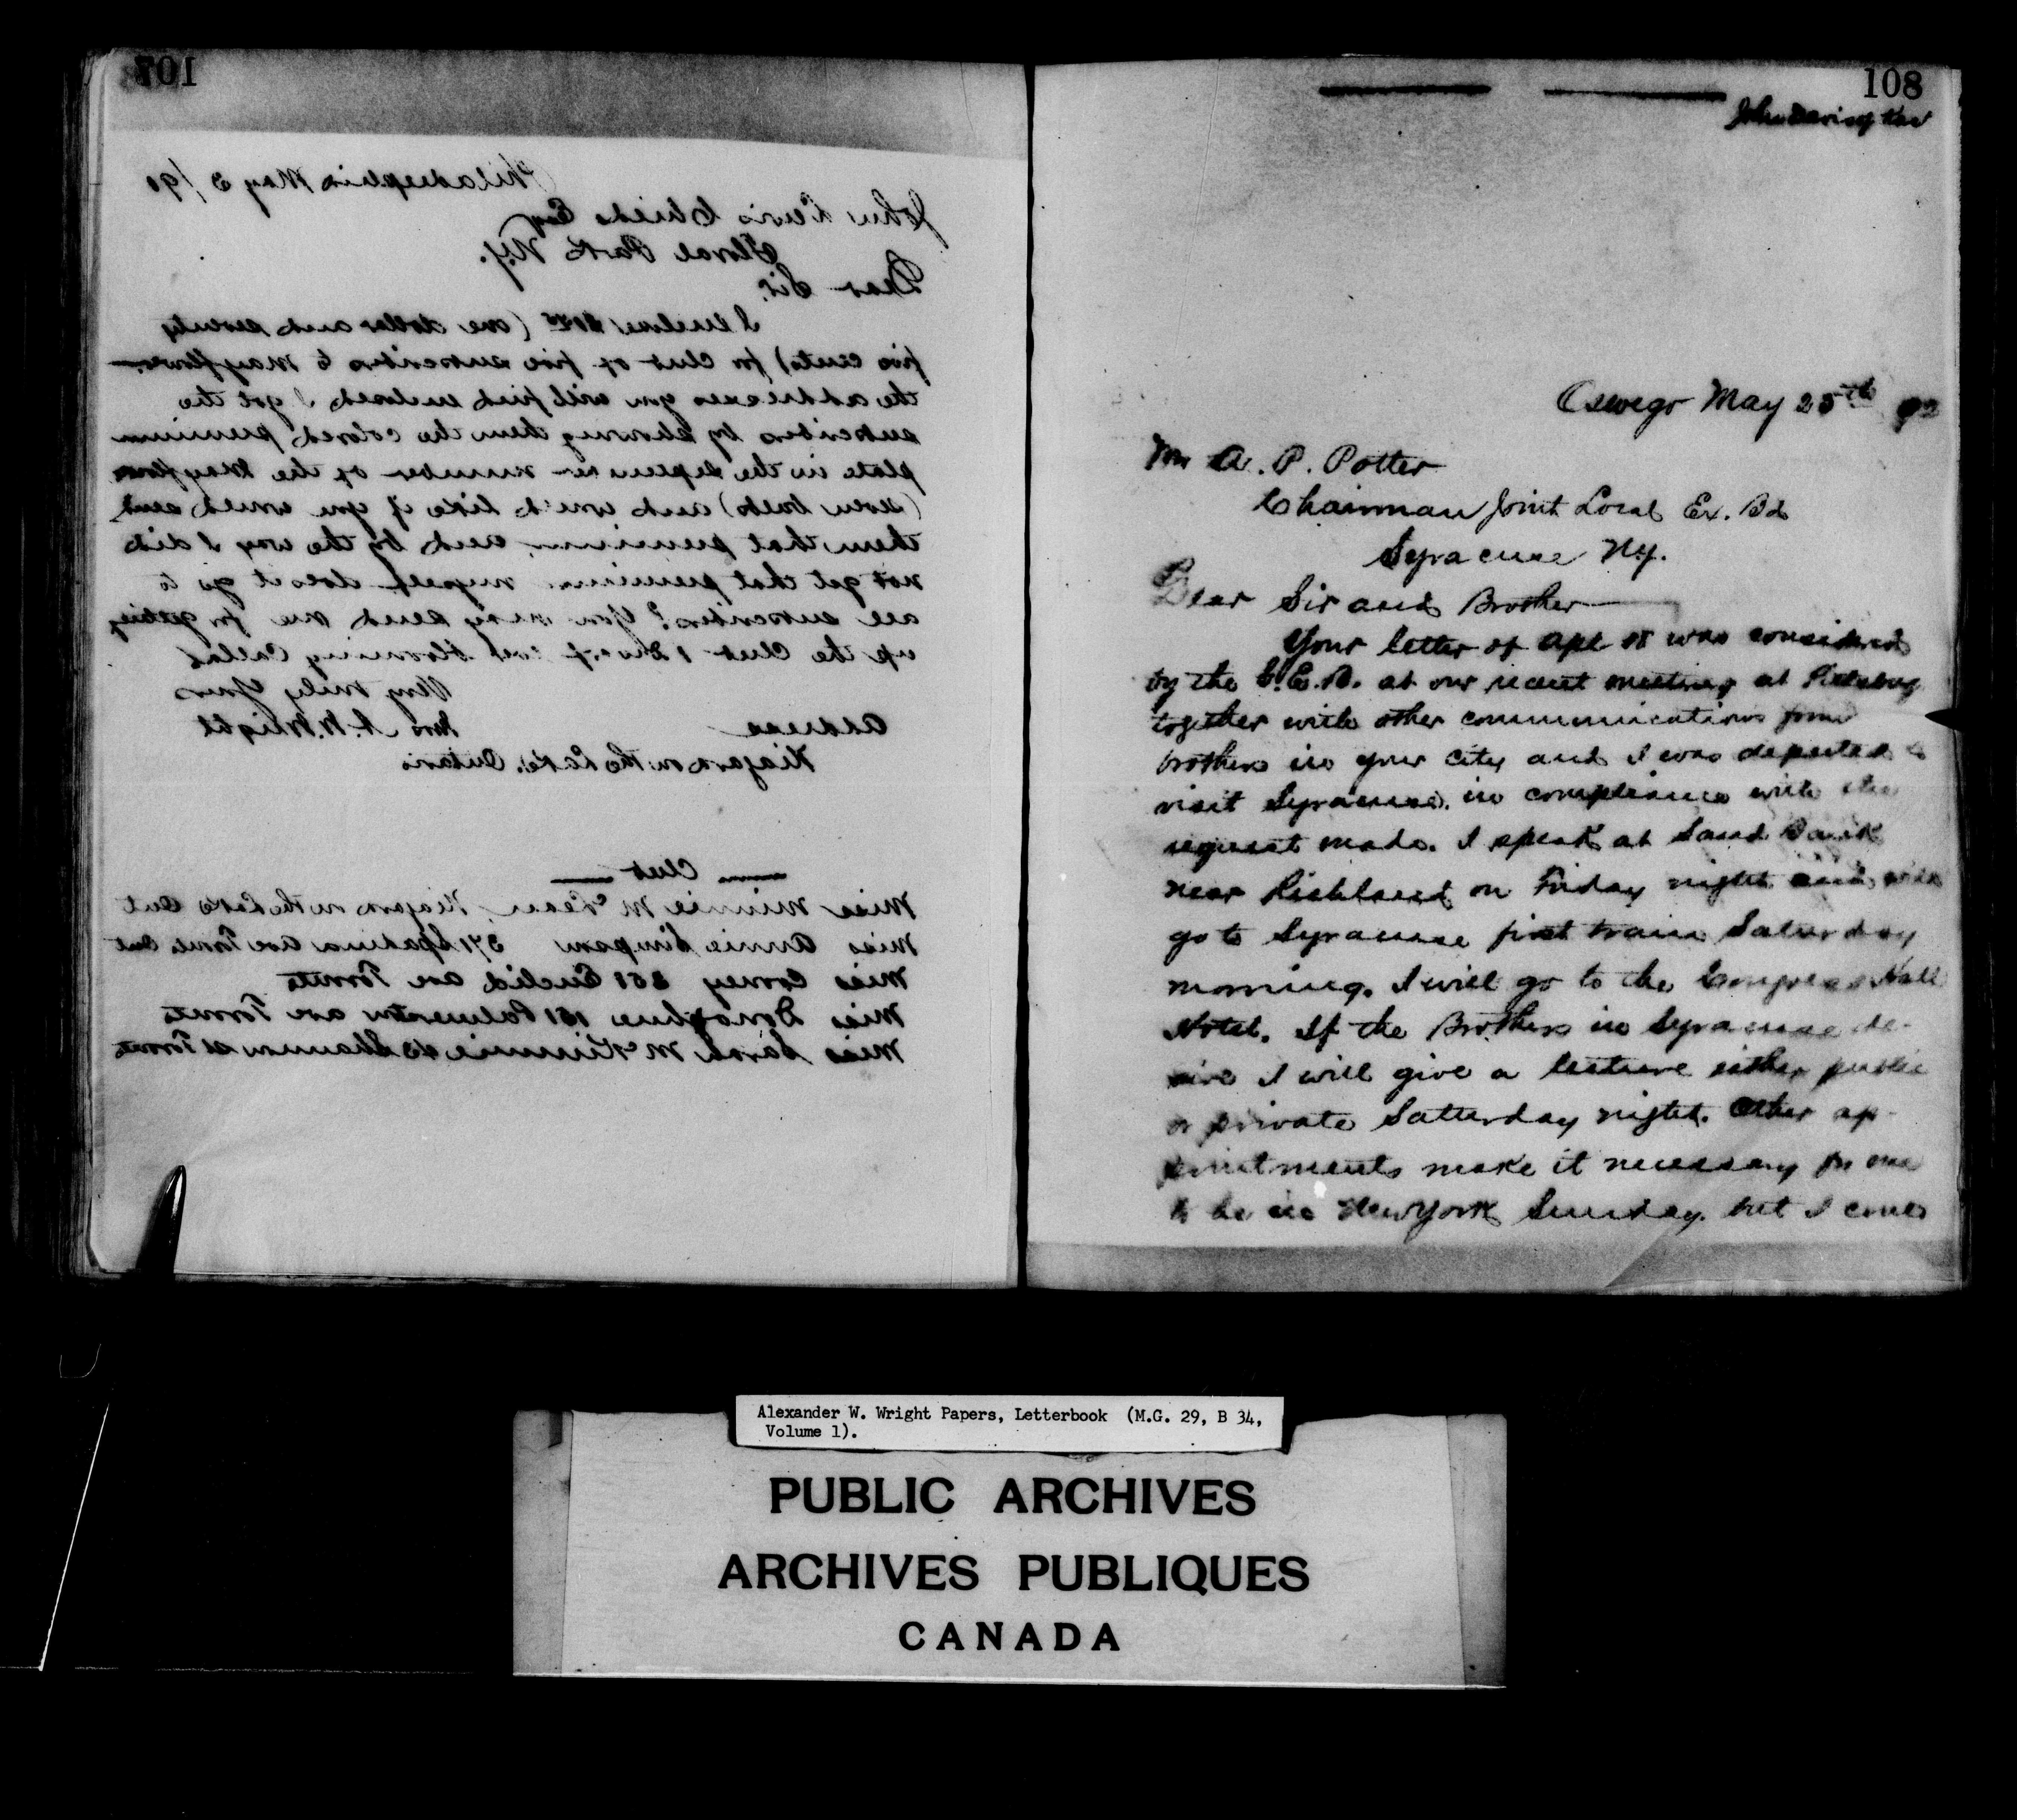 107
Philadelphia May 3/90
John Lewis Childs Esq
Floral Park N.Y.
Dear Sir.
I enclose (one dollar and seventy
five cents) for club of five subscribers to Mayflower
the addresses you will find enclosed I got the
subscribers by showing them the colored premium
plate in the number of the Mayflower
and would like if you would send
them that premium, and by the way I did
not get that premium myself does it go to
all subscribers? You may send me for getting
up the club 1 Dwarf blooming Callas
Very truly Yours
Address Mrs A. W. Wright
Niagara on the Lake. Ontario
Club
Miss Minnie McLean, Niagara on the Lake Ont
Miss Annie Simpson 371 Spadina ave Toronto Ont
Miss Corney Euclid ave Toronto
Miss Donoghue 151 Palmerston ave Toronto
Miss Sarah McKimmie Shannon st Toronto
108
Oswego May 25th 92
Mr A. P. Potter
Chairman Joint Local Ex. Bd
Syracuse N.Y.
Dear Sir and Brother
Your letter of Apl was considered
by the G.E.B. at our recent meeting at
together with other communications from
brothers in your city and I was deputed to
visit Syracuse. in compliance with the
request made. I speak at Sand Bank
near Richland on Friday night and will
go to Syracuse first train Saturday
morning. I will go to the Congress Hall
Hotel. If the Brothers in Syracuse de-
sire I will give a lecture either public
or private Satturday night. Other ap-
pointments make it necessary for me
to be in New York Sunday. but I could
Alexander W. Wright Papers, Letterbook (M.G. 29, B 34,
Volume 1).
PUBLIC ARCHIVES
ARCHIVES PUBLIQUES
CANADA